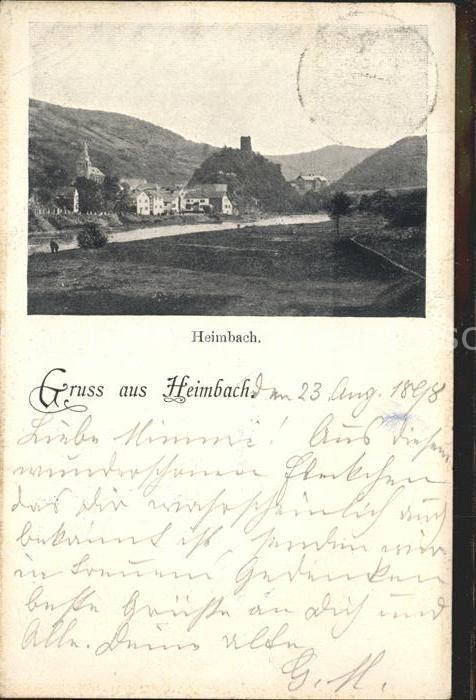 Heimbach.
Gruss aus Heimbach. den 23 Aug. 1898
Liebe Mimmi! Aus diesem
wunderschönen Fleckchen
das dir wahrscheinlich auch
bekannt ist senden wir
in treuem Gedenken
beste Grüße an Dich und
Alle. Deine alte
G. M.